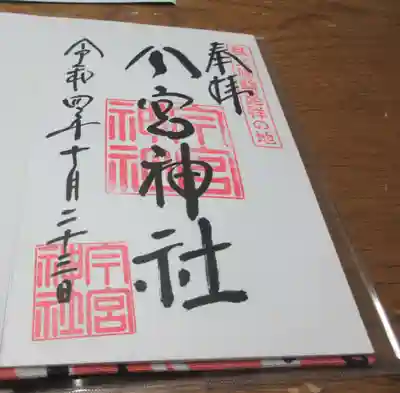 発祥の地
奉拝
今宮神社
今宮
神社
令和四年十月二十三日
今宮
神社